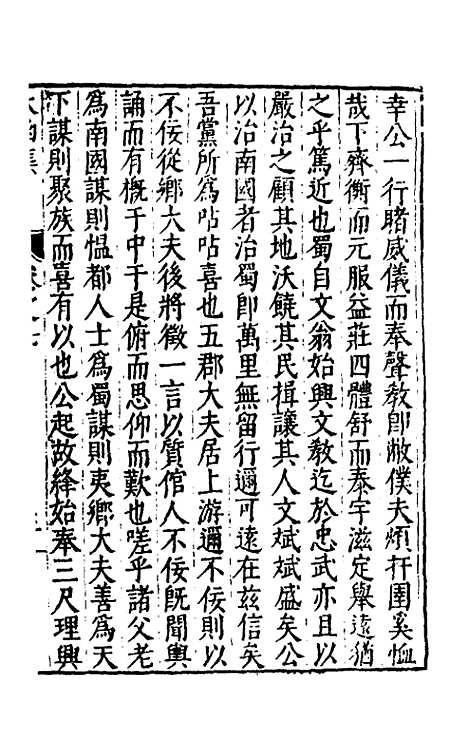 幸公一行睹威儀而奉聲教即敝僕夫煩扞圉奚恤
哉下齊衡而元服益莊四體舒而泰宇滋定舉遠猶
之乎篤近也蜀自文翁始興文教迄於忠武亦且以
嚴治之顧其地沃饒其民揖讓其人文斌斌盛矣公
以治南國者治蜀即萬里無留行邇可遠在茲信矣
吾黨所為呫呫喜也五郡大夫居上游邇不佞則以
不佞從鄉大夫後將徵一言以質倌人不佞既聞輿
誦而有概于中于是俯而思仰而歎也嗟乎諸父老
為南國謀則慍都人士為蜀謀則夷鄉大夫善為天
下謀則聚族而喜有以也公起故絳始奉三尺理興
太函集
卷之七